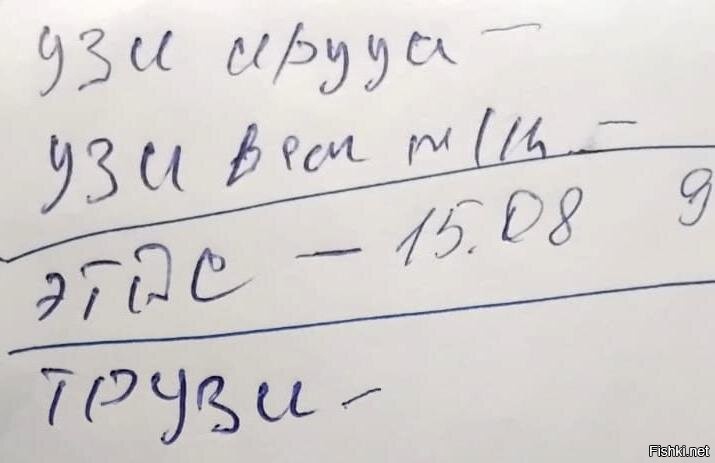 УЗИ —
УЗИ вен н/к —
ЭГДС — 15.08 9
ТРУЗИ —
Fishki.net